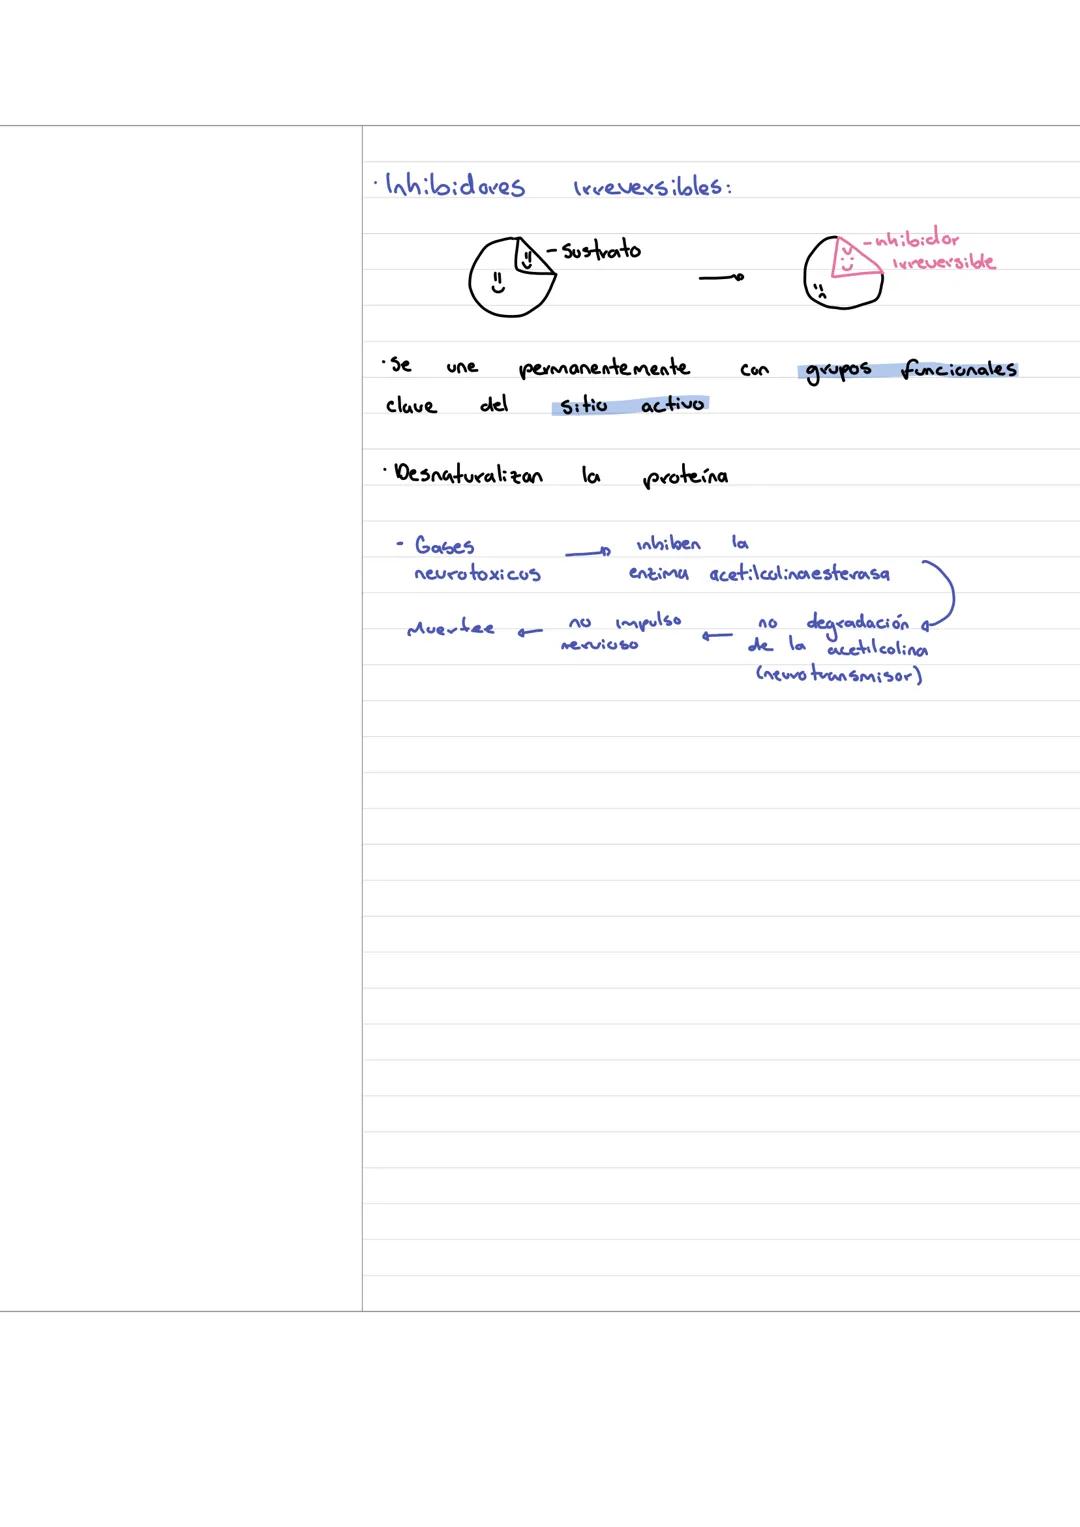 · Inhibidores Irreversibles:
- Sustrato
- nhibidor
irreversible
· Se une permanentemente con grupos funcionales
clave del sitio activo
· Desnaturalizan la proteína
- Gases → inhiben la
neurotoxicos enzima acetilcolinaesterasa
Muertee ← no impulso ← no degradación
nervioso de la acetilcolina
(neurotransmisor)